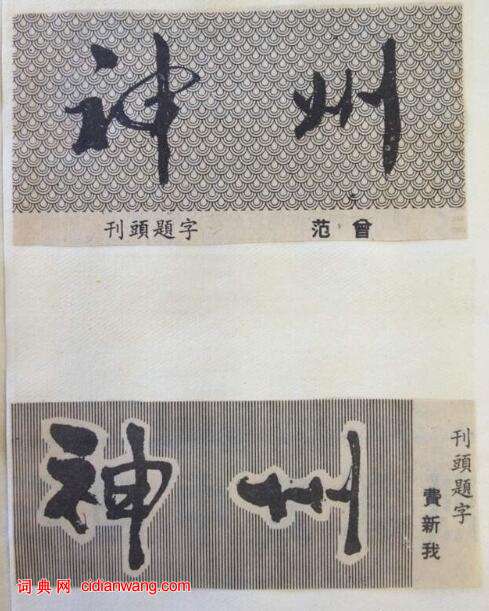 神州
刊頭題字 范曾
神州
刊頭題字
費新我
词典网 cidianwang.com